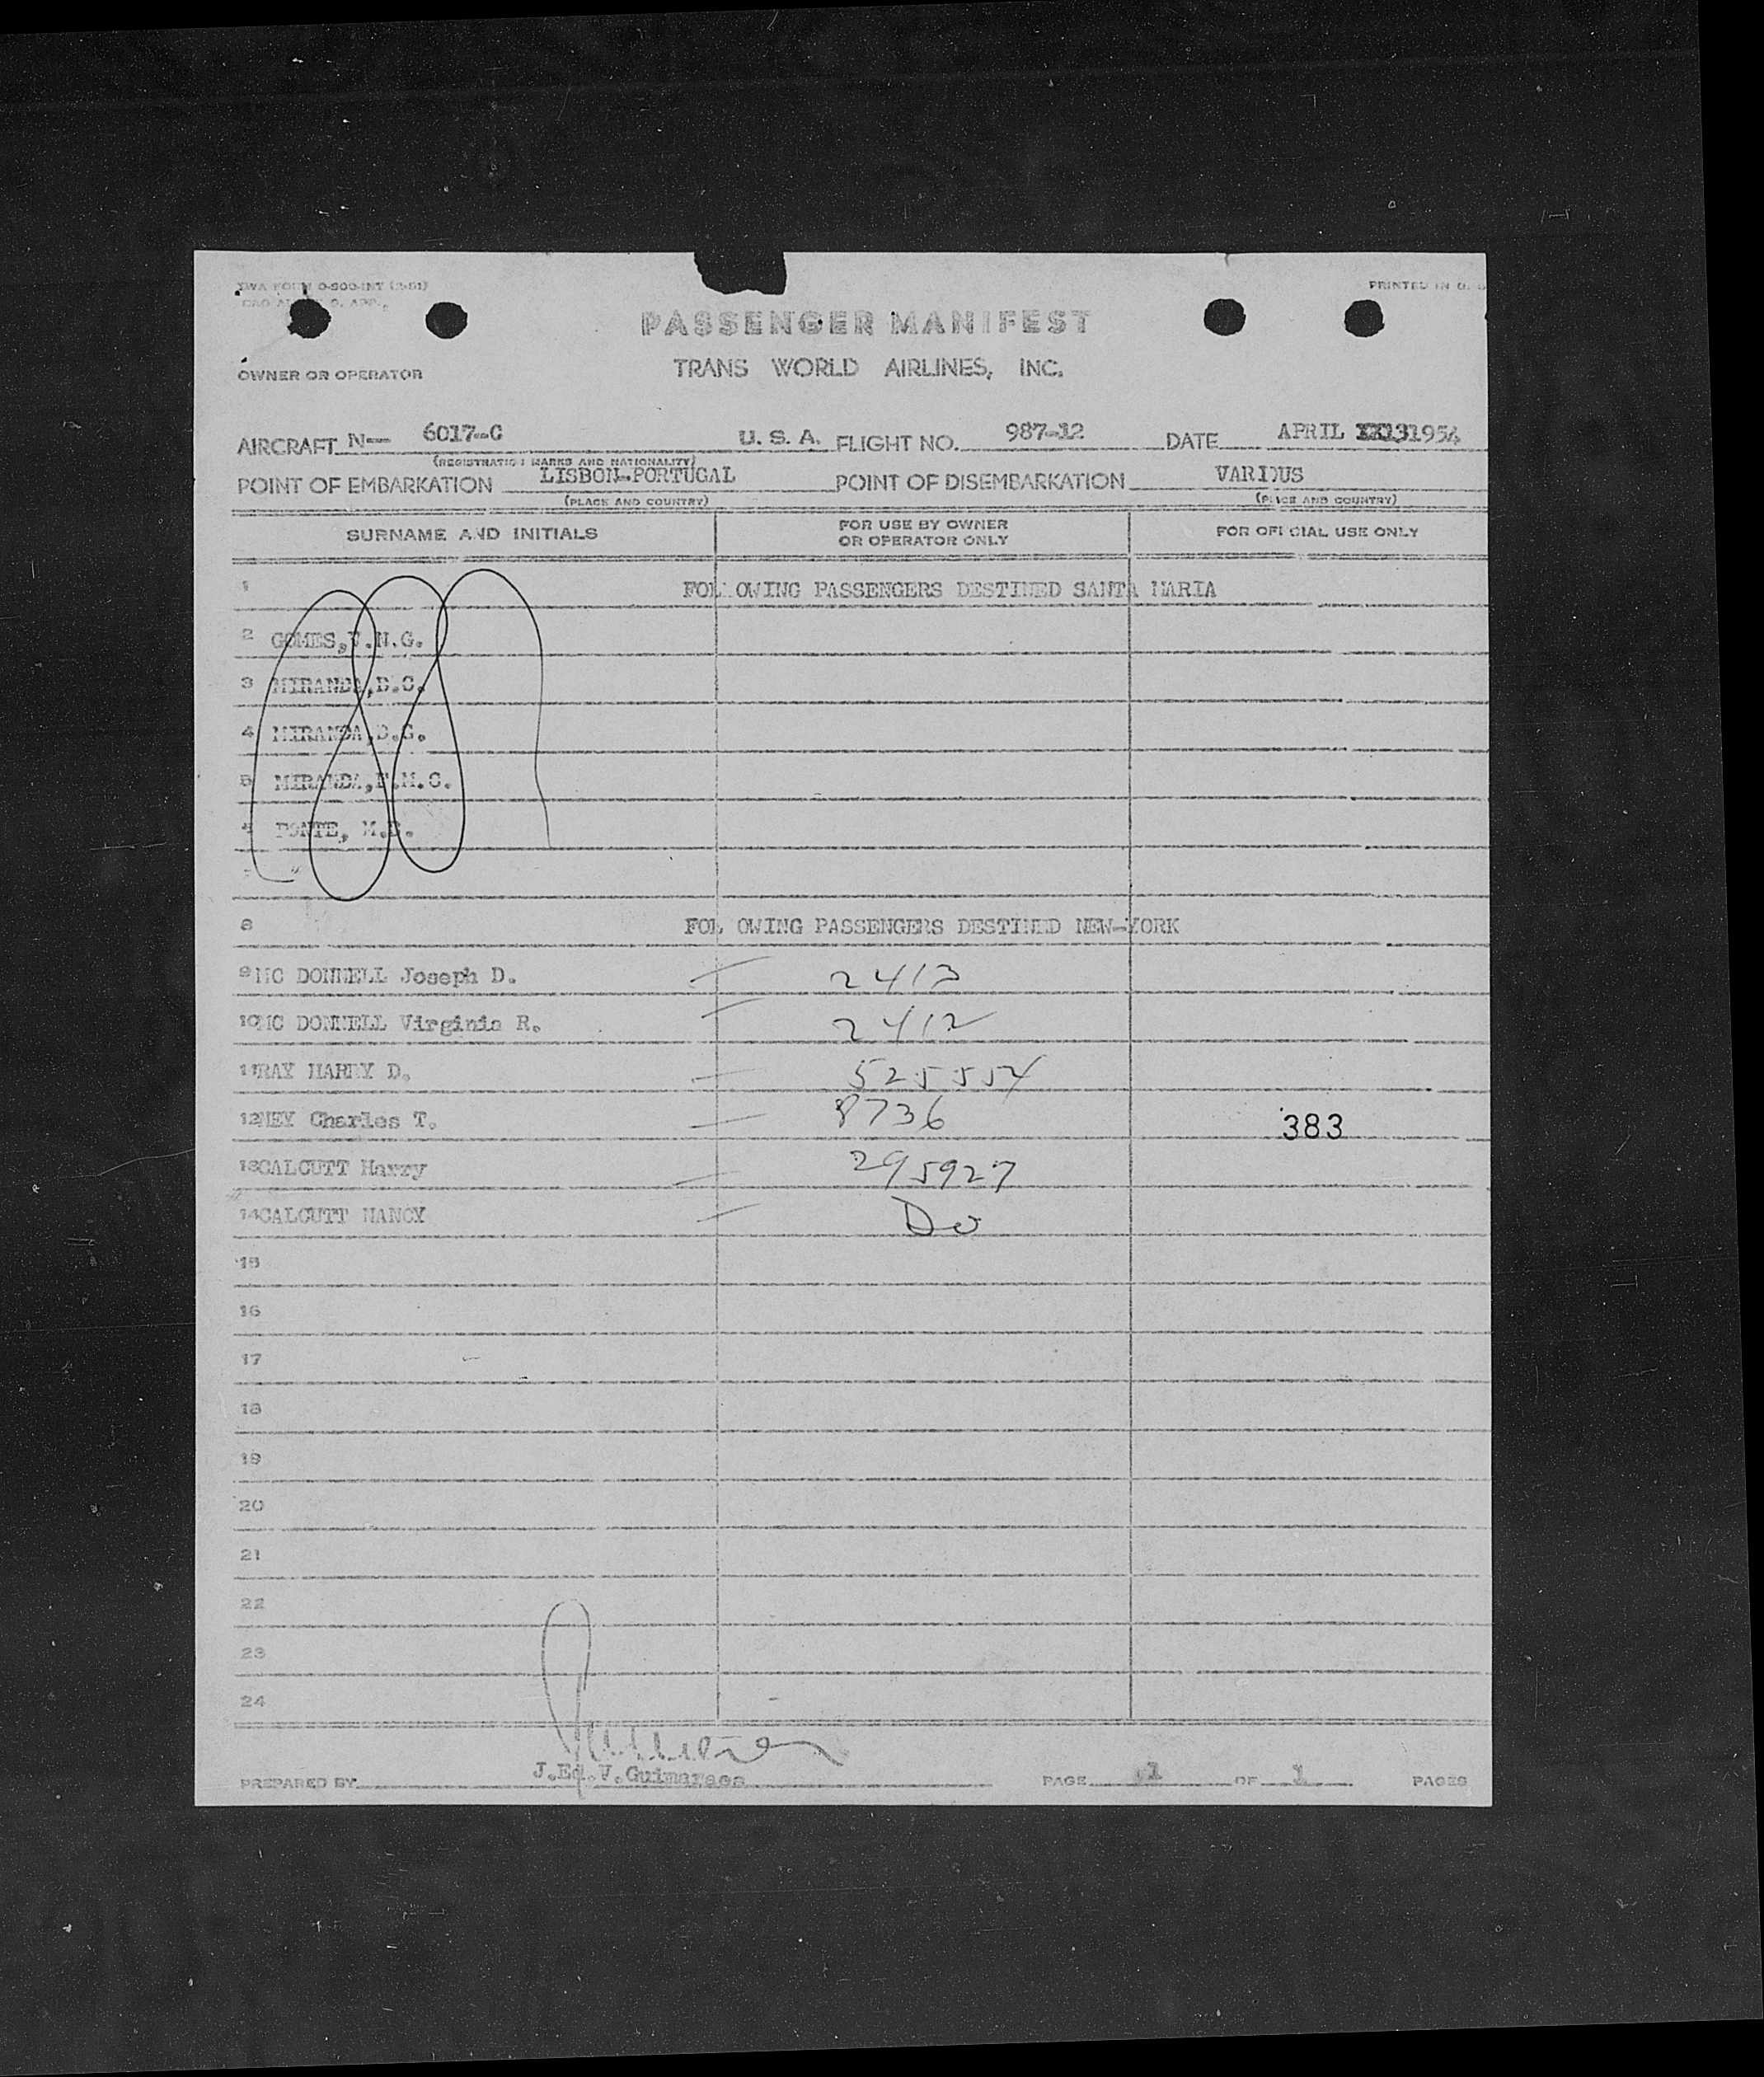 TWA FORM O-900-INT
PRINTED IN U. S
PASSENGER MANIFEST
TRANS WORLD AIRLINES, INC.
OWNER OR OPERATOR
AIRCRAFT N— 6017-C U. S. A. FLIGHT NO. 987-12 DATE APRIL 13 1954
(REGISTRATION MARKS AND NATIONALITY)
POINT OF EMBARKATION LISBON-PORTUGAL POINT OF DISEMBARKATION VARIOUS
(PLACE AND COUNTRY) (PLACE AND COUNTRY)
SURNAME AND INITIALS FOR USE BY OWNER OR OPERATOR ONLY FOR OFFICIAL USE ONLY
1 FOLLOWING PASSENGERS DESTINED SANTA MARIA
2 GOMES, .N.G.
3 MIRANDA,D.C.
4 MIRANDA,D.G.
5 MIRANDA, .M.C.
PONTE, M.
8 FOLLOWING PASSENGERS DESTINED NEW-YORK
9 MC DONNELL Joseph D. — 2413
10 MC DONNELL Virginia R. — 2412
11 RAY HARRY D. — 525554
12 NEY Charles T. — 8736 383
13 CALCUTT Harry — 295927
14 CALCUTT NANCY — Do
15
16
17
18
19
20
21
22
23
24
PREPARED BY J.Ed.V.Guimaraes PAGE 1 OF 1 PAGES